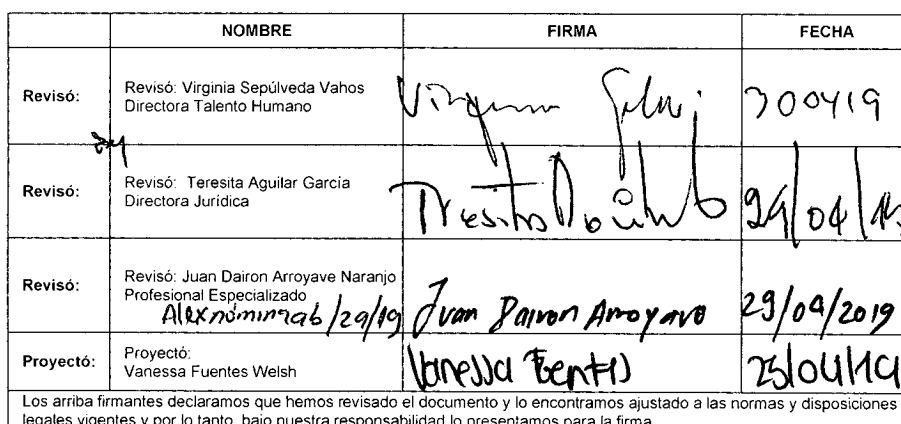 NOMBRE FIRMA FECHA
Revisó: Revisó: Virginia Sepúlveda Vahos
Directora Talento Humano
Virginia 300419
Revisó: Revisó: Teresita Aguilar García
Directora Jurídica
Teresita 29/04/19
Revisó: Revisó: Juan Dairon Arroyave Naranjo
Profesional Especializado
29/19
Juan Dairon Arroyave 29/04/2019
Proyectó: Proyectó:
Vanessa Fuentes Welsh
Vanessa Fuentes 25/04/19
Los arriba firmantes declaramos que hemos revisado el documento y lo encontramos ajustado a las normas y disposiciones
legales vigentes y por lo tanto, bajo nuestra responsabilidad lo presentamos para la firma.